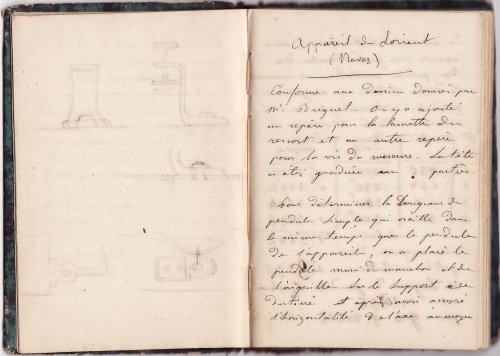 Appareil de Lorient
(Navez)
Conforme aux dessins donnés par
Mr Breguet On y a ajouté
un repère pour la lunette du
ressort et un autre repère
pour la vis de mercure. La tête
a été graduée en . parties
Pour déterminer la longueur du
pendule simple qui oscille dans
le même temps que le pendule
de l'appareil, on a placé le
pendule muni du manchon et de
l'aiguille sur le support à ce
destiné et après avoir assuré
l'horizontalité de l'axe au moyen